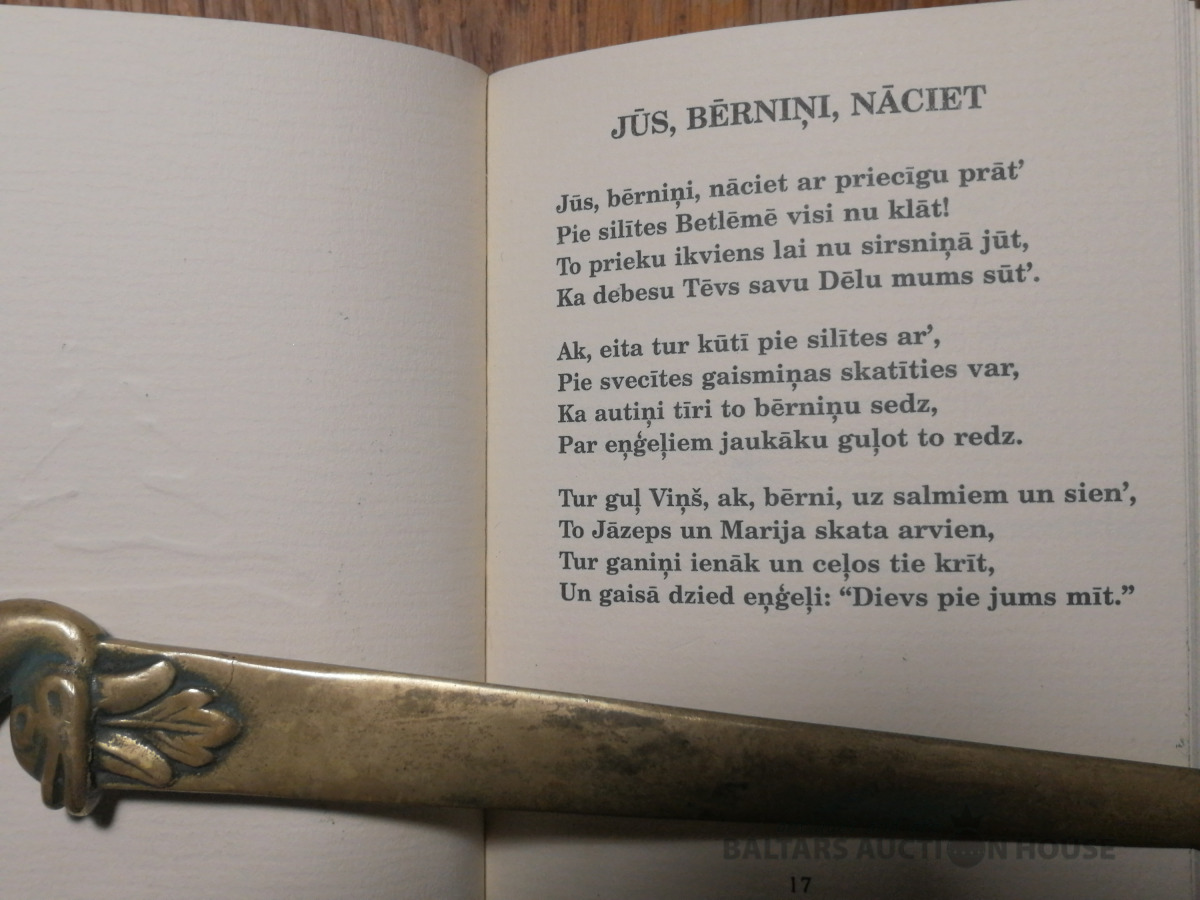 JŪS, BĒRNIŅI, NĀCIET
Jūs, bērniņi, nāciet ar priecīgu prāt’
Pie silītes Betlēmē visi nu klāt!
To prieku ikviens lai nu sirsniņā jūt,
Ka debesu Tēvs savu Dēlu mums sūt’.
Ak, eita tur kūtī pie silītes ar’,
Pie svecītes gaismiņas skatīties var,
Ka autiņi tīri to bērniņu sedz,
Par eņģeļiem jaukāku guļot to redz.
Tur guļ Viņš, ak, bērni, uz salmiem un sien’,
To Jāzeps un Marija skata arvien,
Tur ganiņi ienāk un ceļos tie krīt,
Un gaisā dzied eņģeļi: “Dievs pie jums mīt.”
BALTARS AUCTION HOUSE
17